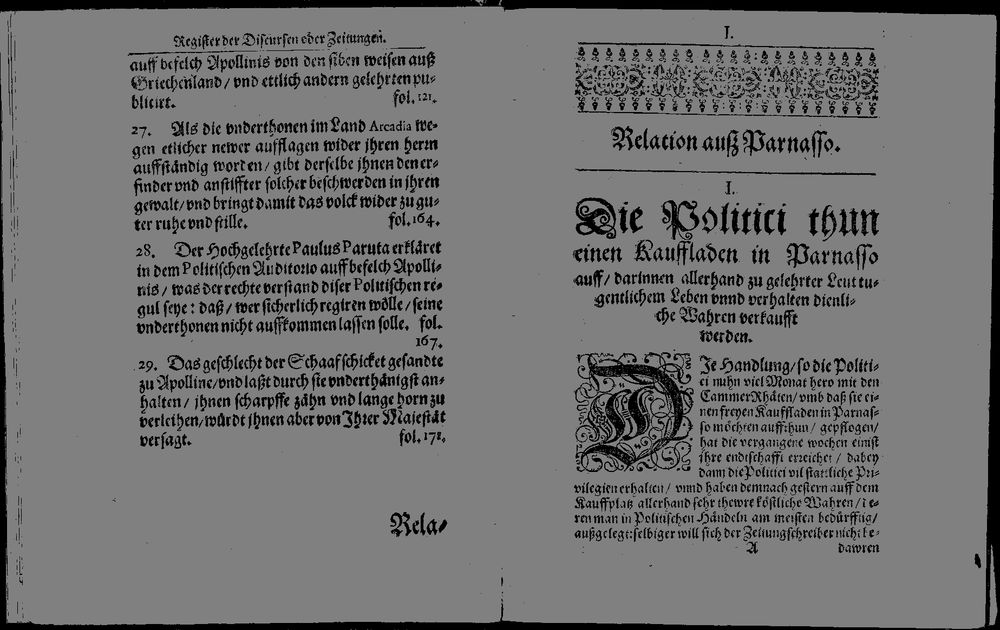 Register der Discursen oder Zeitungen.
auff befelch Apollinis von den siben weisen auß
Griechenland / vnd ettlich andern gelehrten pu-
blicirt. fol. 121.
27. Als die vnderthonen im Land Arcadia we-
gen etlicher newer aufflagen wider jhren herrn
auffständig worden / gibt derselbe jhnen den er-
finder vnd anstiffter solcher beschwerden in jhren
gewalt / vnd bringt damit das volck wider zu gu-
ter ruhe vnd stille. fol. 164.
28. Der Hochgelehrte Paulus Paruta erkläret
in dem Politischen Auditorio auff befelch Apolli-
nis / was der rechte verstand diser Politischen re-
gul seye : daß / wer sicherlich regiren wölle / seine
vnderthonen nicht auffkommen lassen solle. fol.
167.
29. Das geschlecht der Schaaf schicket gesandte
zu Apolline / vnd laßt durch sie vnderthänigst an-
halten / jhnen scharpffe zähn vnd lange horn zu
verleihen / würdt jhnen aber von Ihrer Majestät
versagt. fol. 171.
Rela-
I.
Relation auß Parnasso.
I.
Die Politici thun
einen Kauffladen in Parnasso
auff / darinnen allerhand zu gelehrter Leut tu-
gentlichem Leben vnnd verhalten dienli-
che Wahren verkaufft
werden.
DIe Handlung / so die Politi-
ci nuhn viel Monat hero mit den
CammerRhäten / vmb daß sie ei-
nen freyen Kauffladen in Parnas-
so möchten auffthun / gepflogen /
hat die vergangene wochen einst
jhre endtschafft erreichet / dabey
dann die Politici vil stattliche Pri-
vilegien erhalten / vnnd haben demnach gestern auff dem
Kauffplatz allerhand sehr thewre köstliche Wahren / de-
ren man in Politischen Händeln am meisten bedürfftig /
außgelegt : selbiger will sich der Zeitungschreiber nicht be-
A dawren